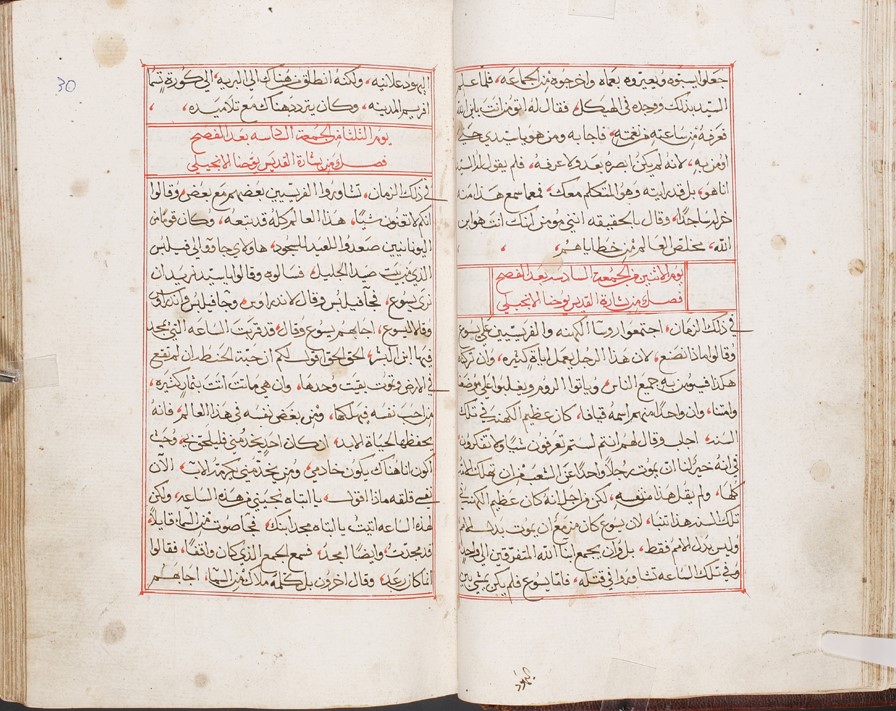 جعلوا يسبوه ويعيروه بعماه واخرجوه من الجماعه، فلما علم
السيد بذلك ووجده في الهيكل فقال له اتومن انت بابن الله
فعرفه من ساعته من نغمته، فاجابه ومن هو يا سيدي حتى
اومن به، لانه لم يكن ابصره بعد ولا عرفه، فلم يقول له السيد
انا هو، بل قد رايته وهو المتكلم معك، فعما سمع هذا منه
خر له ساجدًا، وقال بالحقيقه انني مومن انك انت هو ابن
الله، مخلص العالم من خطاياهم،
يوم الاثنين من الجمعة السادسه بعد الفصح
فصل من بشارة القديس يوحنا الانجيلي
في ذلك الزمان، اجتمعوا روسا الكهنه والفريسيين على يسوع
وقالوا ماذا نصنع، لان هذا الرجل يعمل اياة كثيره، وان تركناه
هكذا فسيومن به جميع الناس، وياتوا الروم ويغلبوا على موضعنا
وامتنا، وان واحدًا منهم اسمه قيافا، كان عظيم الكهنه في تلك
السنه، اجاب وقال لهم انتم لستم تعرفون شيًا ولا تفكرون
في انه خير لنا ان يموت رجلا واحدًا عن الشعب من ان تهلك الامه
كلها، ولم يقل هذا من نفسه، لكن من اجل انه كان عظيم الكهنه في
تلك السنه هذا تنبا، لان يسوع كان مزمع ان يموت بدل الامه
وليس بدل الامم فقط، بل وان يجمع ابنا الله المتفرقين الى واحد
وفي تلك الساعه تشاوروا في قتله، فاما يسوع فلم يكن يمشي بين
اليهود
30
اليهود علانيه، ولكنه انطلق من هناك الى البريه، الى كورة تسما
افريم المدينه، وكان يتردد هناك مع تلاميذه،
يوم الثلثا من الجمعة السادسه بعد الفصح
فصل من بشارة القديس يوحنا الانجيلي
في ذلك الزمان، تشاوروا الفريسيين بعضهم مع بعض وقالوا
انكم لا تغنون شيًا، هذا العالم كله قد تبعه، وكان قوم من
اليونانيين صعدوا للعيد للسجود، هاولاي جاوا الى فيلبس
الذي من بيت صيدا الجليل، فسالوه وقالوا يا سيد نريد ان
نرى يسوع، فجا فيلبس وقال لاندراوس، وجا فيلبس واندراوس
وقالا ليسوع، اجابهم يسوع وقال، قد قربت الساعه التي يمجد
فيها ابن البشر، الحق الحق اقول لكم ان حبة الحنطه ان لم تقع
في الارض وتموت بقيت وحدها، وان هي ماتت اتت بثمار كثيره،
من احب نفسه فيهلكها، ومن بغض نفسه في هذا العالم فانه
يحفظها لحياة الابد، ان كان احد يخدمني فليلحق بي، وحيث
اكون انا هناك يكون خادمي، ومن يخدمني يكرمه الاب، الان
نفسي قلقه ماذا اقول، يا ابتاه نجيني من هذه الساعه، ولكن
لهذه الساعه اتيت يا ابتاه مجد ابنك، فجا صوت من السما، قايلا،
قد مجدت، وايضًا امجد، فسمع الجمع الذي كان واقفًا، فقالوا
انما كان رعد، وقال اخرون بل كلمه ملاك من السما، اجابهم